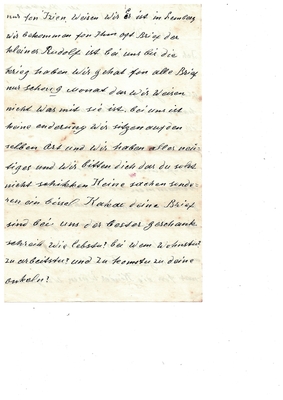 nur fon Irien. Weisen wir Er ist in Lemberg
wir bekomman fon Ihm oft Brief der
kleiner Rudolf ist bei uns bis die
krieg haben wir gehat fon alle Brief
nur schoin 9 Monat das wir Weisen
nicht was mit sie ist. bei uns ist
keine enderung wir sitzen auf den
selben Ort und wir haben alles
und wir bitten dich das du solst
nicht schikken Keine sachen sonde-
ren ein bisel Kakao deine Brief
sind bei uns der besser geschank.
schreib wie lebstu? bei wem Wohnstu?
zu arbeitstu? und zu komstu zu deine
onkeln?